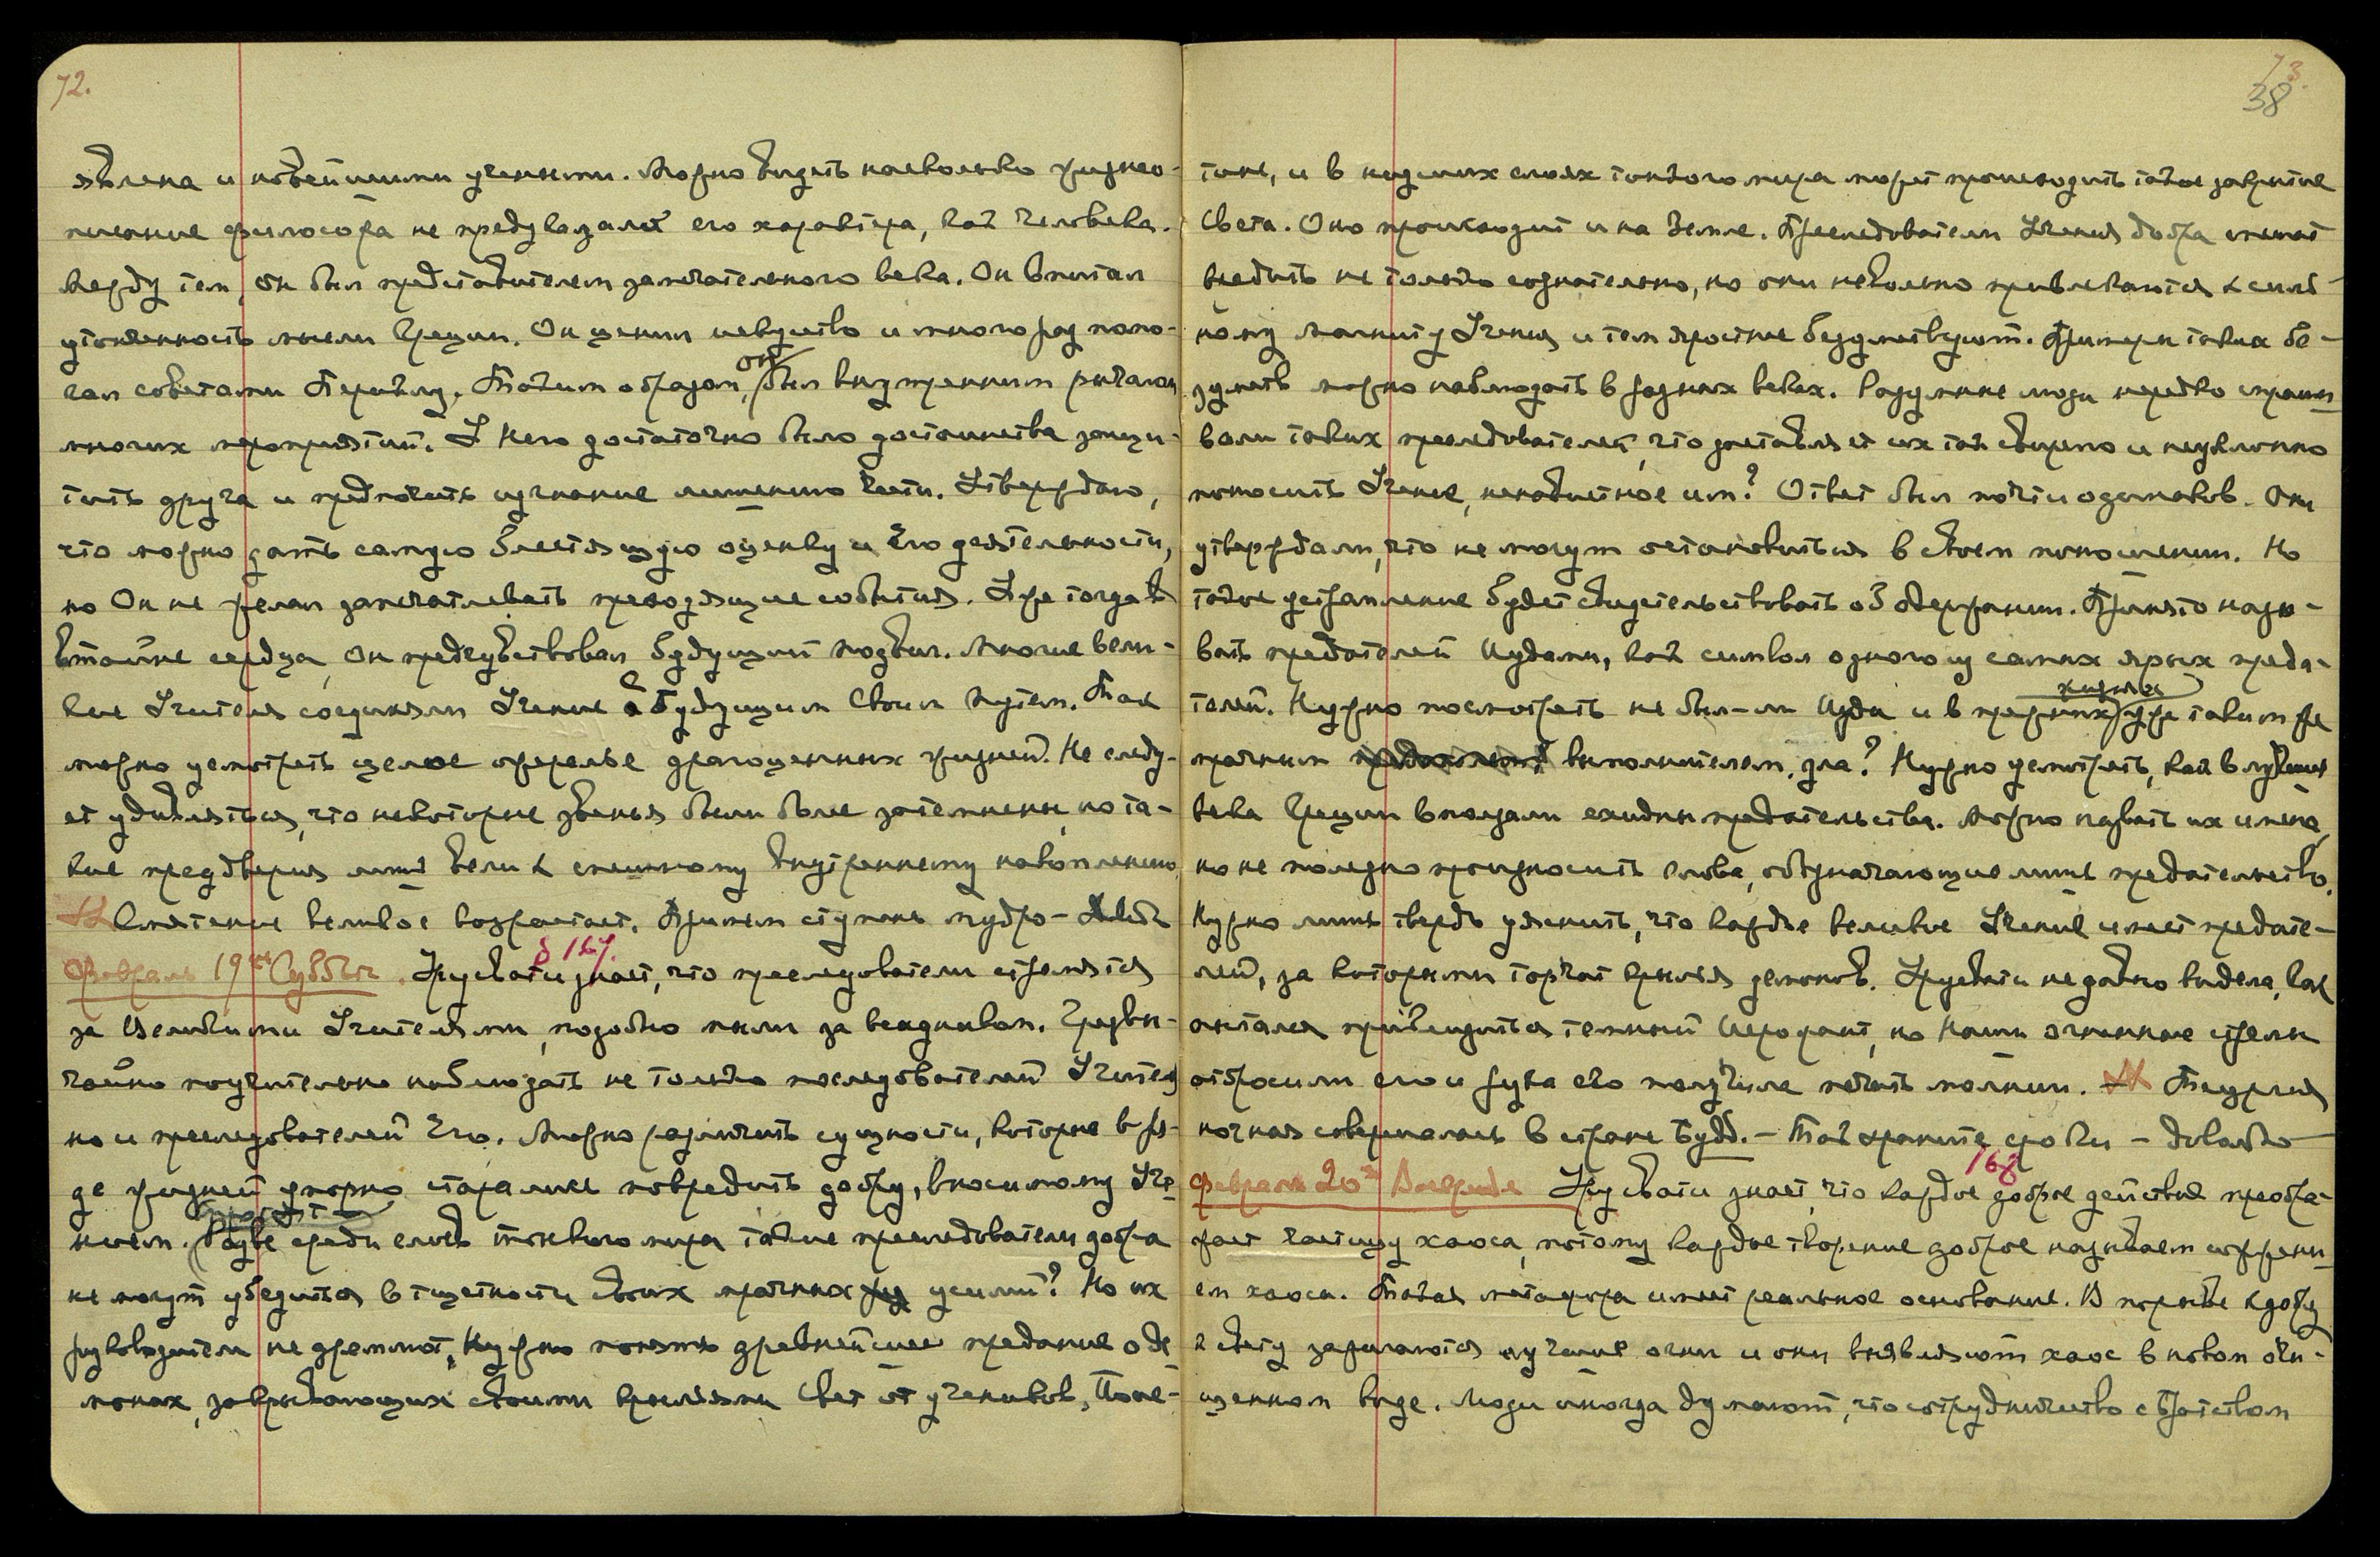 72.
явлена и новейшими учеными. Можно видеть насколько жизнео-
писание философа не предуказалет его характера, как человека.
Между тем, он был представителем замечательного века. Он впитал
утонченность мысли Греции. Он ценил искусство и много раз помо-
гал советами Периклу. Таким образом, он был внутренним рычагом
многих мероприятий. У Него достаточно было достоинства защи-
тить друга и предпочесть изгнание лишению чести. Утверждаю,
что можно дать самую блестящую оценку и Его деятельности,
но Он не желал запечатлевать преходящие события. Уже тогда в
тайне сердца Он предчувствовал будущий подвиг. Многие вели-
кие Учителя соединяли Учение с будущим Своим путем. Так
можно усмотреть целое ожерелье драгоценных жизней. Не следу-
ет удивляться, что некоторые звенья были более затемнены, но та-
кие преддверия лишь вели к спешному внутреннему накоплению
Смятение великое возрастает. Примем ступень мудро —
Февраль 19ое Суббота. § 167. Урусвати знает, что преследователи стремятся
за Великими Учителями, подобно пыли за всадником. Чрезвы-
чайно поучительно наблюдать не только последователей Учителя
но и преследователей Его. Можно различить сущности, которые в ря-
де жизней упорно старались повредить добру, вносимому Уче-
нием. Спросят Разве среди слоев тонкого мира такие преследователи добра
не могут убедиться в тщетности своих мрачных усилий? Но их
руководители не дремлют. Нужно понять древнейшее предание о де-
монах, закрывающих своими крыльями Свет от учеников. Пове-
73.
38
тоне, и в низших слоях тонкого мира может происходить такое закрытие
Света. Оно происходит и на Земле. Преследователи Учения добра спешат
вредить не только сознательно, но они невольно привлекаются к силь-
ному магниту Учения и тем яростнее бездумствуют. Примеры таких бе-
зумств можно наблюдать в разных веках. Разумные люди нередко спраши
вали таких преследователей, что заставляет их так свирепо и неуклонно
поносить Учение, ненавистное им? Ответ был почти одинаков. Они
утверждали, что не могут остановиться в своем поношении. Но
такое устремление будет свидетельствовать об одержании. Принято назы-
вать предателей Иудами, как символ одного из самых ярых преда-
телей. Нужно посмотреть не был-ли Иуда и в прежних жизнях уже таким же
мрачным выполнителем зла? Нужно усмотреть, как в лучшие
века Греции вползали ехидны предательства. Можно назвать их имена,
но не полезно произносить слова, обозначающие лишь предательство.
Нужно лишь твердо уяснить, что каждое великое Учение имеет предате-
лей, за которыми торчат крылья демонов. Урусвати недавно видела, как
пытался приблизиться темный Иерофант, но Наши огненные стрелы
отбросили его и рука его получила печать молнии. Теургия
ночная совершалась в стране Будд. — Так храните сроки — довольно —
Февраль 20ое Воскресенье 168 Урусвати знает, что каждое доброе действие преобра-
жает частицу хаоса, потому каждое творение доброе называем сожжени-
ем хаоса. Такая метафора имеет реальное основание. В порыве к добру
к свету зарождаются лучшие огни и они выявляют хаос в новом очи-
щенном виде. Люди иногда думают, что сотрудничество с Братством